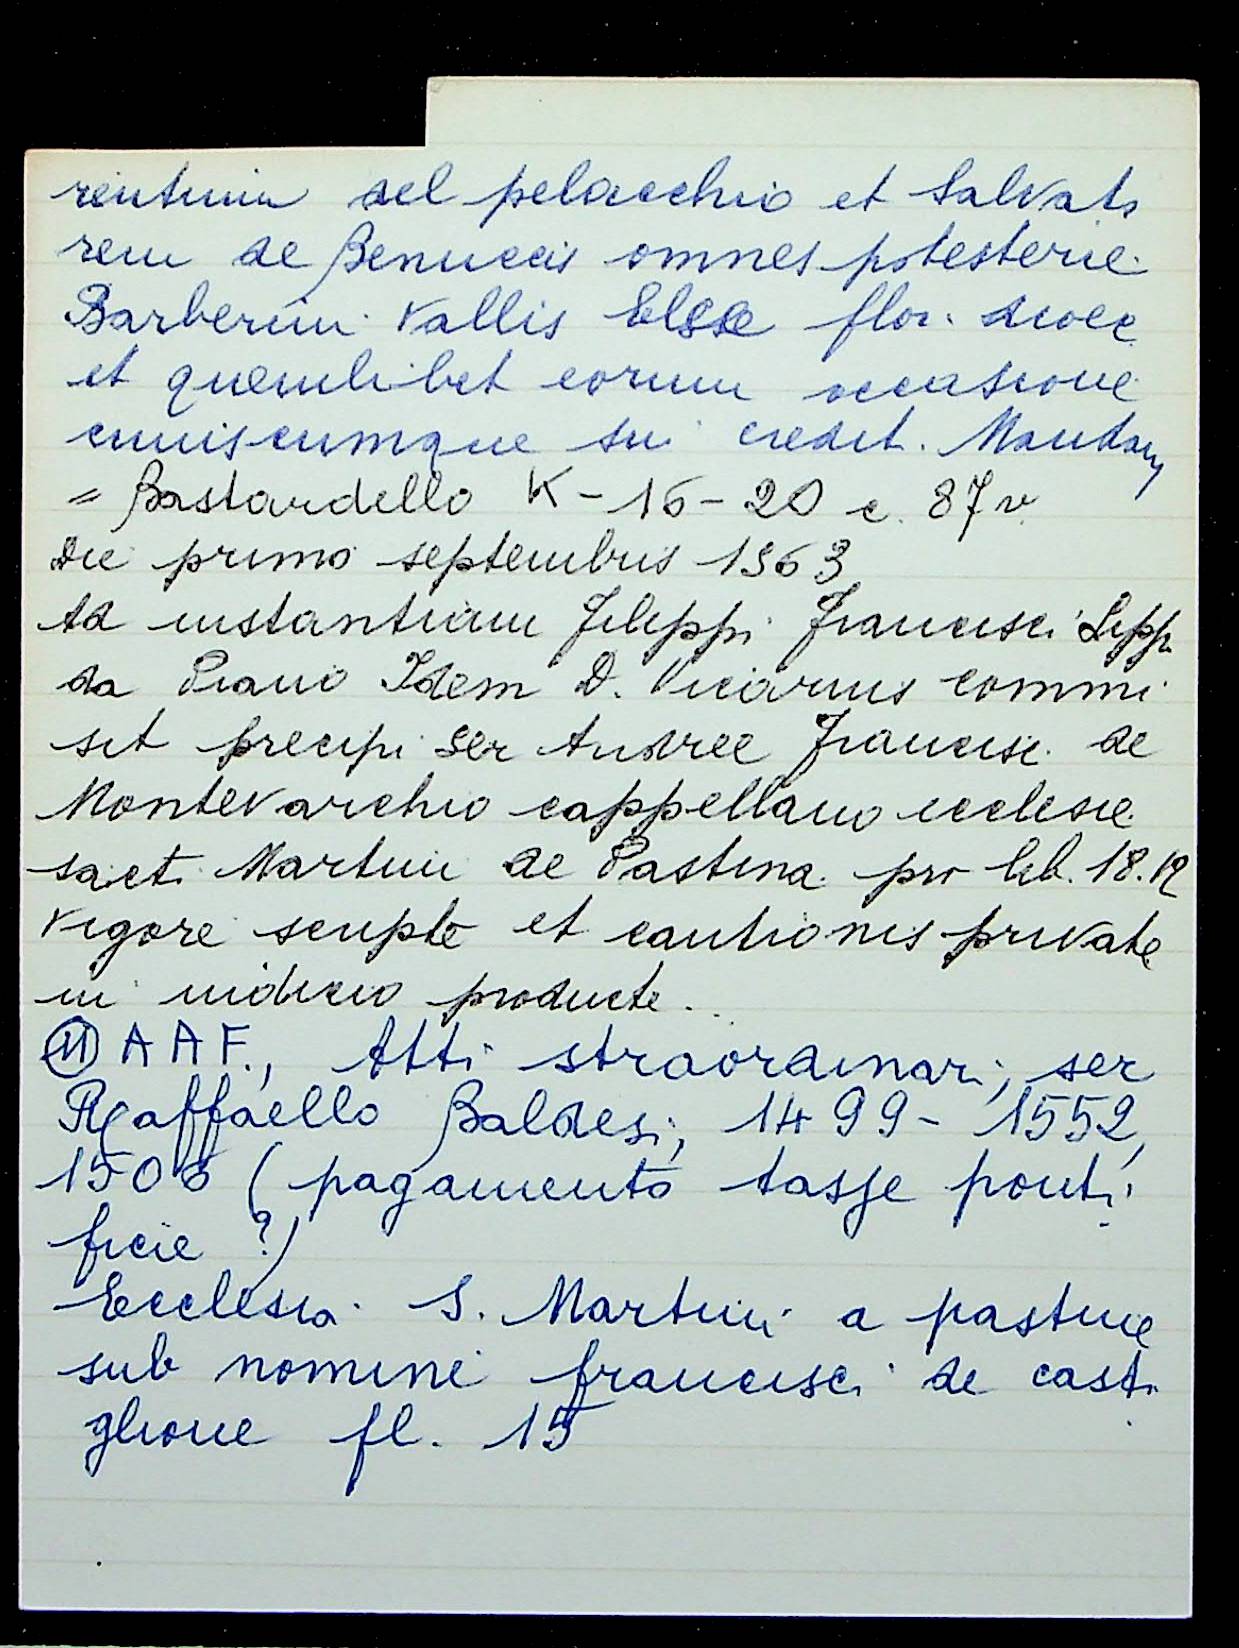 rentium del pelacchio et Salvato
rem de Benuccis omnes potesterie
Barberini Vallis Else flor. dioec
et quemlibet eorum occasione
cuiuscumque sui credit. Mandans
= Bastardello K-16-20 c. 87v
Die primo septembris 1563
Ad instantiam Filippi Francisci Lippi
da Piano Idem D. Vicarius commi
sit precipi Ser Andree Francisci de
Montevarchio cappellano ecclesie
sancti Martini de Pastina pro lib. 18.19
vigore scripte et cautionis private
in iudicio producte...
(11) A A F., Atti straordinari, ser
Raffaello Baldesi, 1499-1552,
1506 (pagamento tasse ponti
ficie ?)
Ecclesia S. Martini a pastine
sub nomine francisci de casti
glione fl. 15